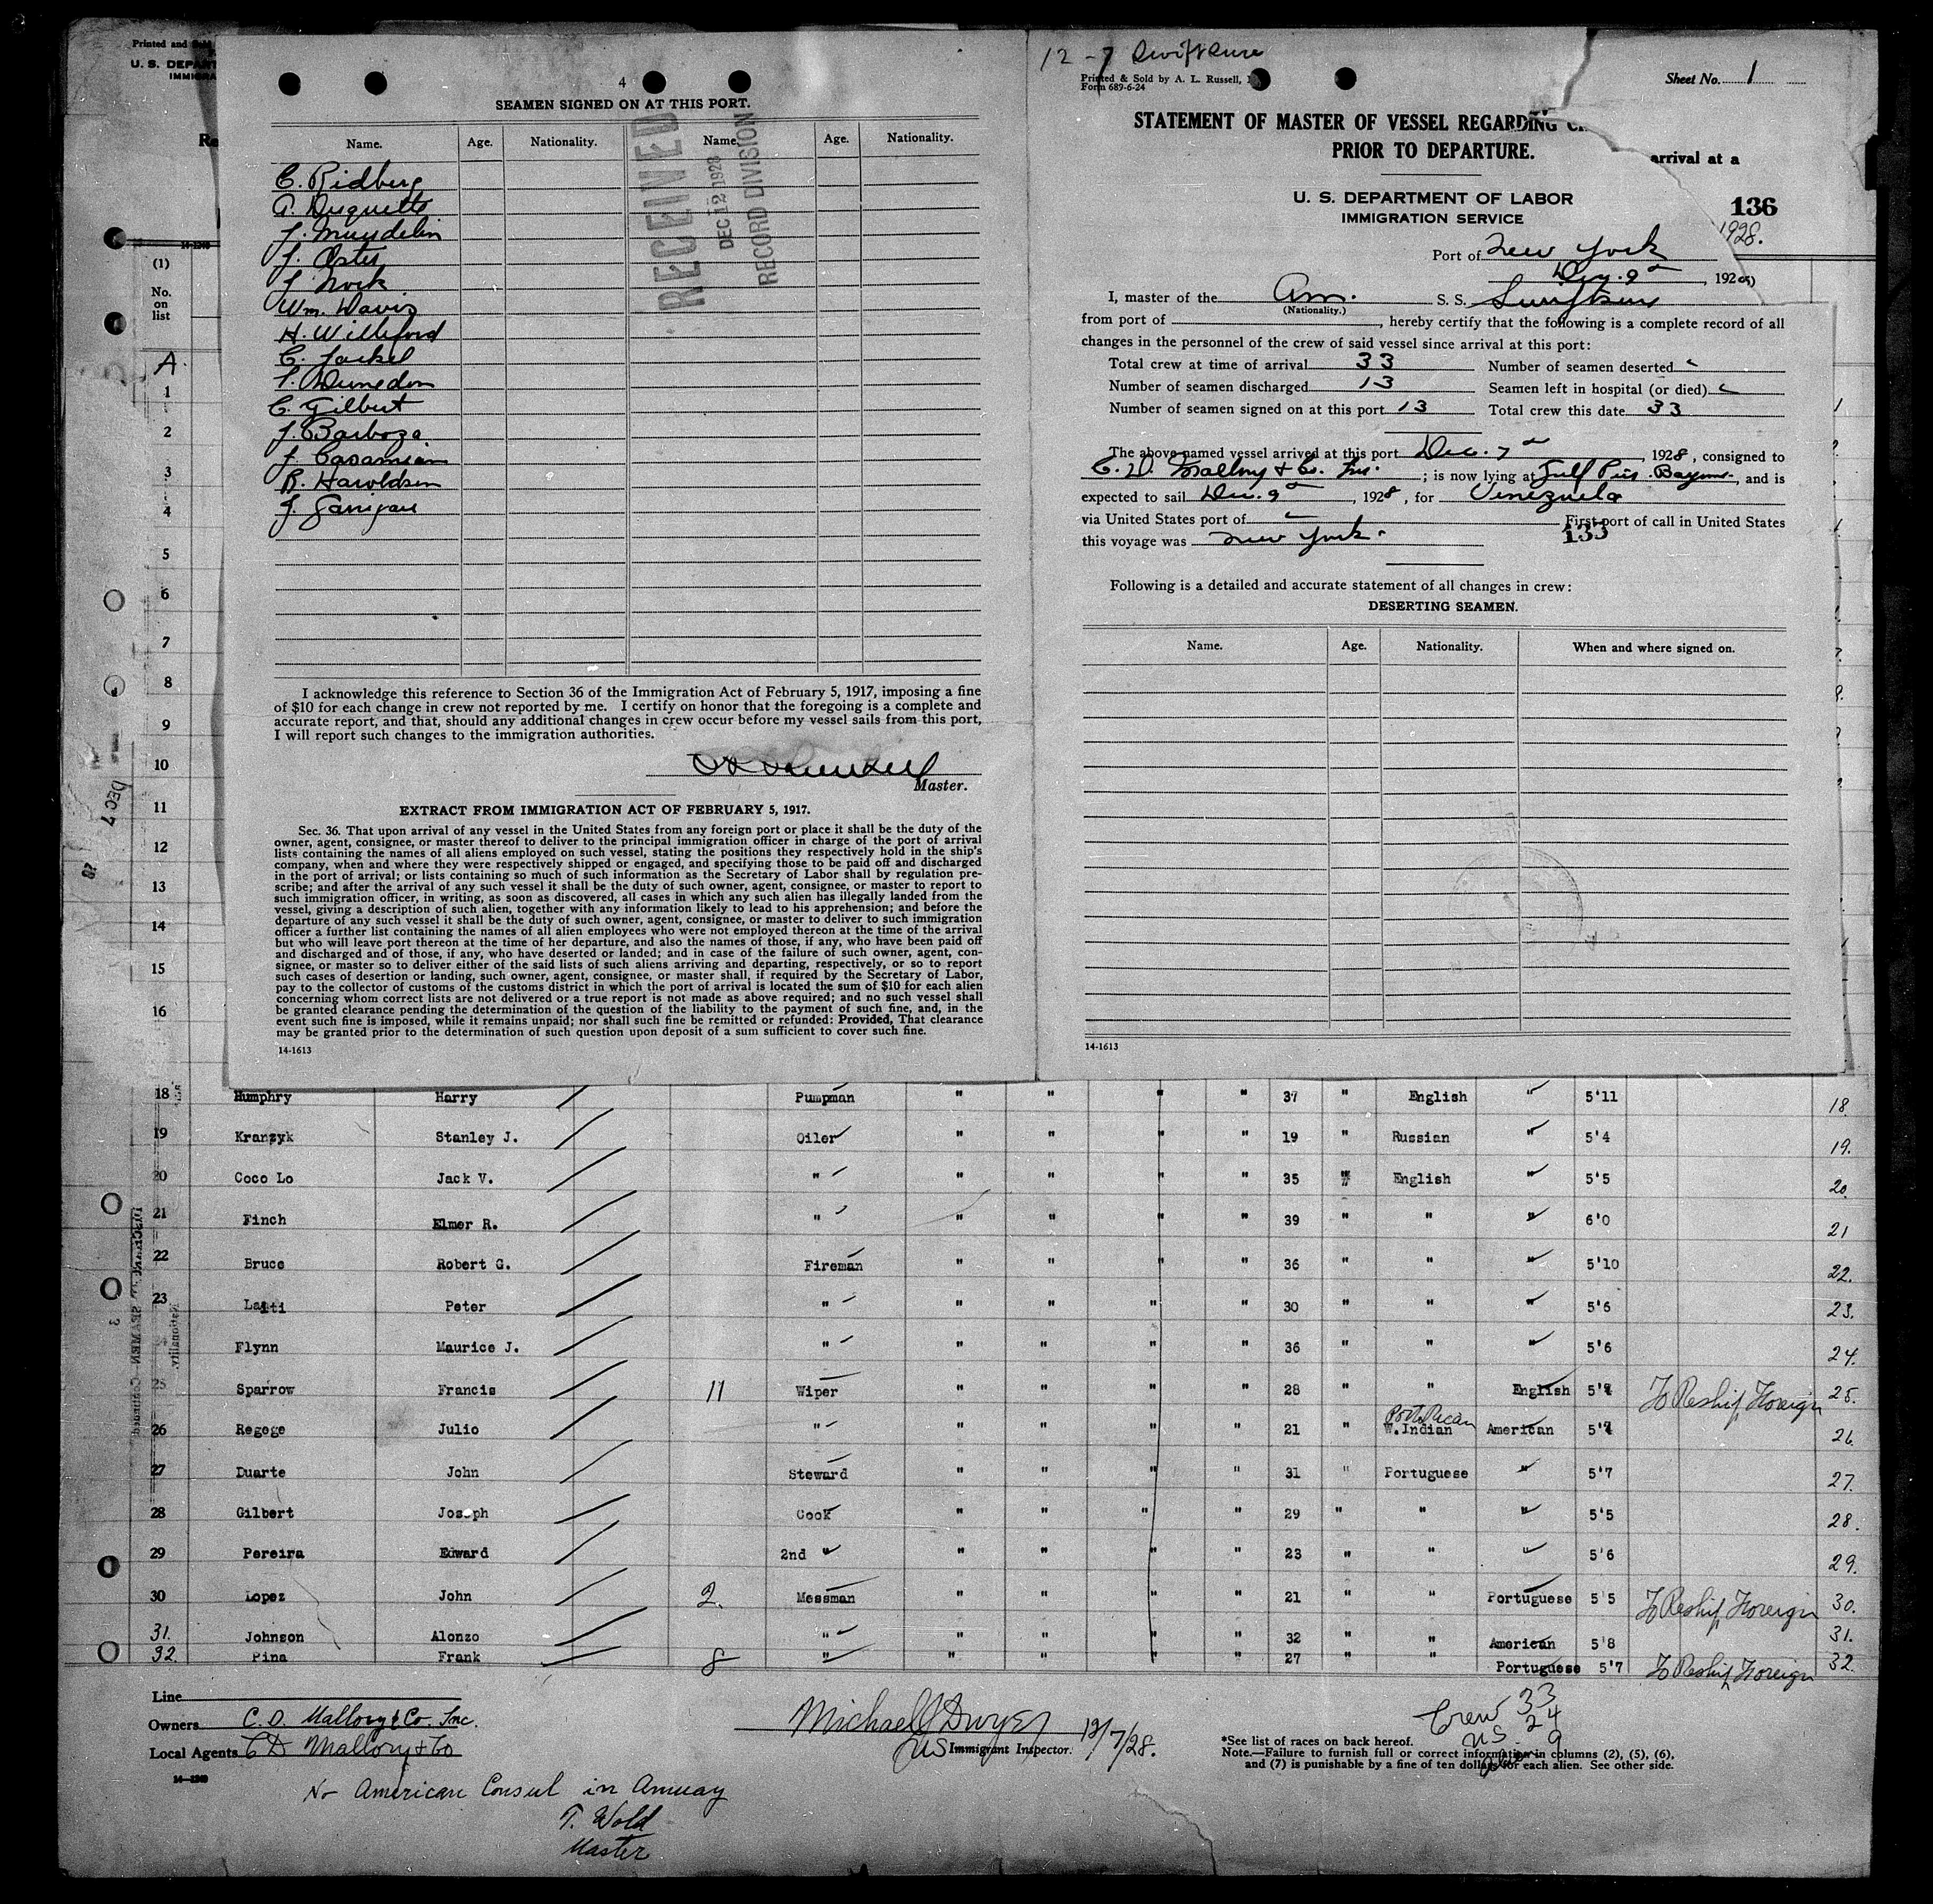 Printed and Sold
U. S. DEPART
IMMIGRA
4
SEAMEN SIGNED ON AT THIS PORT.
Name. Age. Nationality. Name. Age. Nationality.
C. Ridberg
A. Duquette
J. Oster
Wm. Davis
H. Williford
C. Jackel
C. Gilbert
J. Barboza
R. Haroldsen
RECEIVED
DEC 12 1928
RECORD DIVISION
I acknowledge this reference to Section 36 of the Immigration Act of February 5, 1917, imposing a fine
of $10 for each change in crew not reported by me. I certify on honor that the foregoing is a complete and
accurate report, and that, should any additional changes in crew occur before my vessel sails from this port,
I will report such changes to the immigration authorities.
Master.
EXTRACT FROM IMMIGRATION ACT OF FEBRUARY 5, 1917.
Sec. 36. That upon arrival of any vessel in the United States from any foreign port or place it shall be the duty of the
owner, agent, consignee, or master thereof to deliver to the principal immigration officer in charge of the port of arrival
lists containing the names of all aliens employed on such vessel, stating the positions they respectively hold in the ship's
company, when and where they were respectively shipped or engaged, and specifying those to be paid off and discharged
in the port of arrival; or lists containing so much of such information as the Secretary of Labor shall by regulation pre-
scribe; and after the arrival of any such vessel it shall be the duty of such owner, agent, consignee, or master to report to
such immigration officer, in writing, as soon as discovered, all cases in which any such alien has illegally landed from the
vessel, giving a description of such alien, together with any information likely to lead to his apprehension; and before the
departure of any such vessel it shall be the duty of such owner, agent, consignee, or master to deliver to such immigration
officer a further list containing the names of all alien employees who were not employed thereon at the time of the arrival
but who will leave port thereon at the time of her departure, and also the names of those, if any, who have been paid off
and discharged and of those, if any, who have deserted or landed; and in case of the failure of such owner, agent, con-
signee, or master so to deliver either of the said lists of such aliens arriving and departing, respectively, or so to report
such cases of desertion or landing, such owner, agent, consignee, or master shall, if required by the Secretary of Labor,
pay to the collector of customs of the customs district in which the port of arrival is located the sum of $10 for each alien
concerning whom correct lists are not delivered or a true report is not made as above required; and no such vessel shall
be granted clearance pending the determination of the question of the liability to the payment of such fine, and, in the
event such fine is imposed, while it remains unpaid; nor shall such fine be remitted or refunded: Provided, That clearance
may be granted prior to the determination of such question upon deposit of a sum sufficient to cover such fine.
14-1613
12 - 7 Swiftsure
Printed & Sold by A. L. Russell,
Form 689-6-24
Sheet No. 1
STATEMENT OF MASTER OF VESSEL REGARDING
PRIOR TO DEPARTURE.
arrival at a
U. S. DEPARTMENT OF LABOR
IMMIGRATION SERVICE
136
1928.
Port of New York
Dec. 9 , 192
I, master of the Am. S. S. Swiftsure
(Nationality.)
from port of , hereby certify that the following is a complete record of all
changes in the personnel of the crew of said vessel since arrival at this port:
Total crew at time of arrival 33 Number of seamen deserted
Number of seamen discharged 13 Seamen left in hospital (or died)
Number of seamen signed on at this port 13 Total crew this date 33
The above-named vessel arrived at this port Dec. 7 , 1928, consigned to
C. D. Mallory & Co. Inc. ; is now lying at Gulf , and is
expected to sail Dec. 9 , 1928, for Venezuela
via United States port of First port of call in United States
this voyage was New York.
133
Following is a detailed and accurate statement of all changes in crew:
DESERTING SEAMEN.
Name. Age. Nationality. When and where signed on.
14-1613
(1)
No.
on
list
A
1
2
3
4
5
6
7
8
9
10
11
12
13
14
15
16
DEC 7
18 Humphry Harry Pumpman " " " " 37 " English " 5'11 18.
19 Kranzyk Stanley J. Oiler " " " " 19 " Russian " 5'4 19.
20 Coco Lo Jack V. " " " " " 35 " English " 5'5 20
21 Finch Elmer R. " " " " " 39 " " " 6'0 21
22 Bruce Robert G. Fireman " " " " 36 " " " 5'10 22.
23 Peter " " " " " 30 " " " 5'6 23.
Flynn Maurice J. " " " " " 36 " " " 5'6 24.
25 Sparrow Francis 11 Wiper " " " " 28 " " English To Reship Foreign 25.
26 Regege Julio " " " " " 21 " Porto Rican W. Indian American 26.
27 Duarte John Steward " " " " 31 " Portuguese " 5'7 27.
28 Gilbert Joseph Cook " " " " 29 " " " 5'5 28.
29 Pereira Edward 2nd " " " " " 23 " " " 5'6 29.
30 Lopez John 2. Messman " " " " 21 " " Portuguese 5'5 To Reship Foreign 30.
31. Johnson Alonzo " " " " " 32 " " American 5'8 31.
32. Pina Frank 8 " " " " " 27 " " Portuguese 5'7 To Reship Foreign 32.
Line
Owners C. D. Mallory & Co. Inc.
Local Agents C D Mallory & Co
14-1240
Michael J Dwyer 12/7/28.
US Immigrant Inspector.
Crew 33
US. 24
9
*See list of races on back hereof.
Note.—Failure to furnish full or correct information in columns (2), (5), (6),
and (7) is punishable by a fine of ten dollars for each alien. See other side.
No American Consul in Amuay
T. Wold
Master